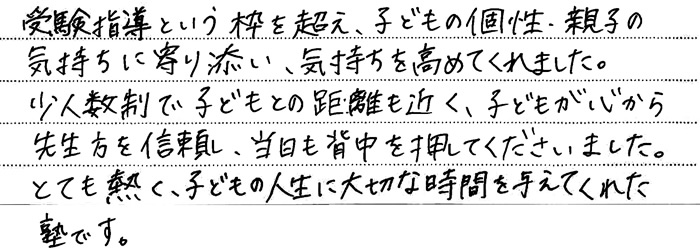 受験指導という枠を超え、子どもの個性・親子の
気持ちに寄り添い、気持ちを高めてくれました。
少人数制で子どもとの距離も近く、子どもが心から
先生方を信頼し、当日も背中を押してくださいました。
とても熱く、子どもの人生に大切な時間を与えてくれた
塾です。